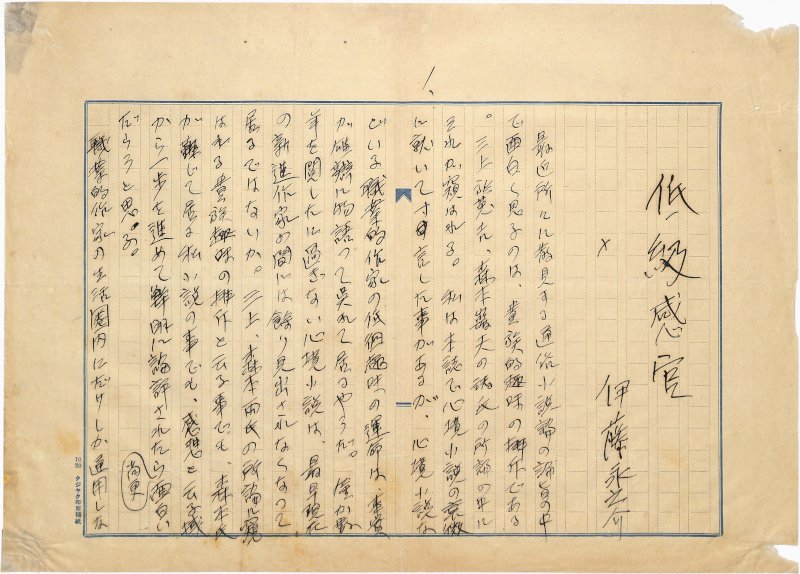 一、
低級感官
×
伊藤永之介
最近所々に散見する通俗小説論の論旨の中
で面白く思ふのは、貴族的趣味の排斥である
。三上於菟吉、森本巌夫の諸氏の所論の中に
それが窺はれる。私は本誌で心境小説の衰微
に就いて寸言した事があるが、心境小説な
どいふ職業的作家の低徊趣味の運命は、事実
が雄弁に物語つて呉れて居るやうだ。僅か数
年を閲したに過ぎない心境小説は、最早現在
の新進作家の間には余り見出されなくなつて
居るではないか。三上、森本両氏の所論に窺
はれる貴族趣味の排斥と云ふ事でも、森本氏
が難じて居る私小説の事でも、感想と云ふ域
から一歩を進めて鮮明に論評されたら尚更面白い
だらうと思ふ。
職業的作家の生活圏内にだけしか通用しな
10 20 クジヤク印原稿紙